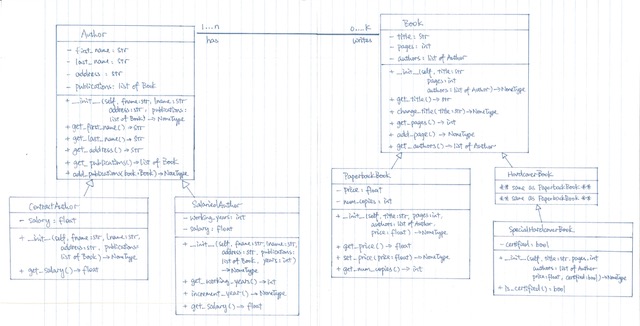 Author
- first_name : str
- last_name : str
- address : str
- publications: list of Book
+ __init__(self, fname:str, lname:str
address:str, publications:
list of Book) → NoneType
+ get_first_name() → str
+ get_last_name() → str
+ get_address() → str
+ get_publications() → list of Book
+ add_publication(book: Book) → NoneType
1...n
has
0...k
writes
Book
- title : str
- pages : int
- authors : list of Author
+ __init__(self, title:str
pages: int
authors: list of Author) → NoneType
+ get_title() → str
+ change_title(title:str) → NoneType
+ get_pages() → int
+ add_page() → NoneType
+ get_authors() → list of Author
ContractAuthor
- salary : float
+ __init__(self, fname:str, lname:str,
address:str, publications:
list of Book) → NoneType
+ get_salary() → float
SalariedAuthor
- working_years: int
- salary: float
+ __init__(self, fname:str, lname:str,
address:str, publications:
list of Book, years: int)
→ NoneType
+ get_working_years() → int
+ increment_years() → NoneType
+ get_salary() → float
PaperbackBook
- price: float
- num_copies: int
+ __init__(self, title:str, pages:int,
authors: list of Author,
price: float) → NoneType
+ get_price() → float
+ set_price(price:float) → NoneType
+ get_num_copies() → int
HardcoverBook
** same as PaperbackBook **
** same as PaperbackBook **
SpecialHardcoverBook
- certified: bool
+ __init__(self, title:str, pages:int
authors: list of Author
price:float, certified:bool) → NoneType
+ is_certified(): bool